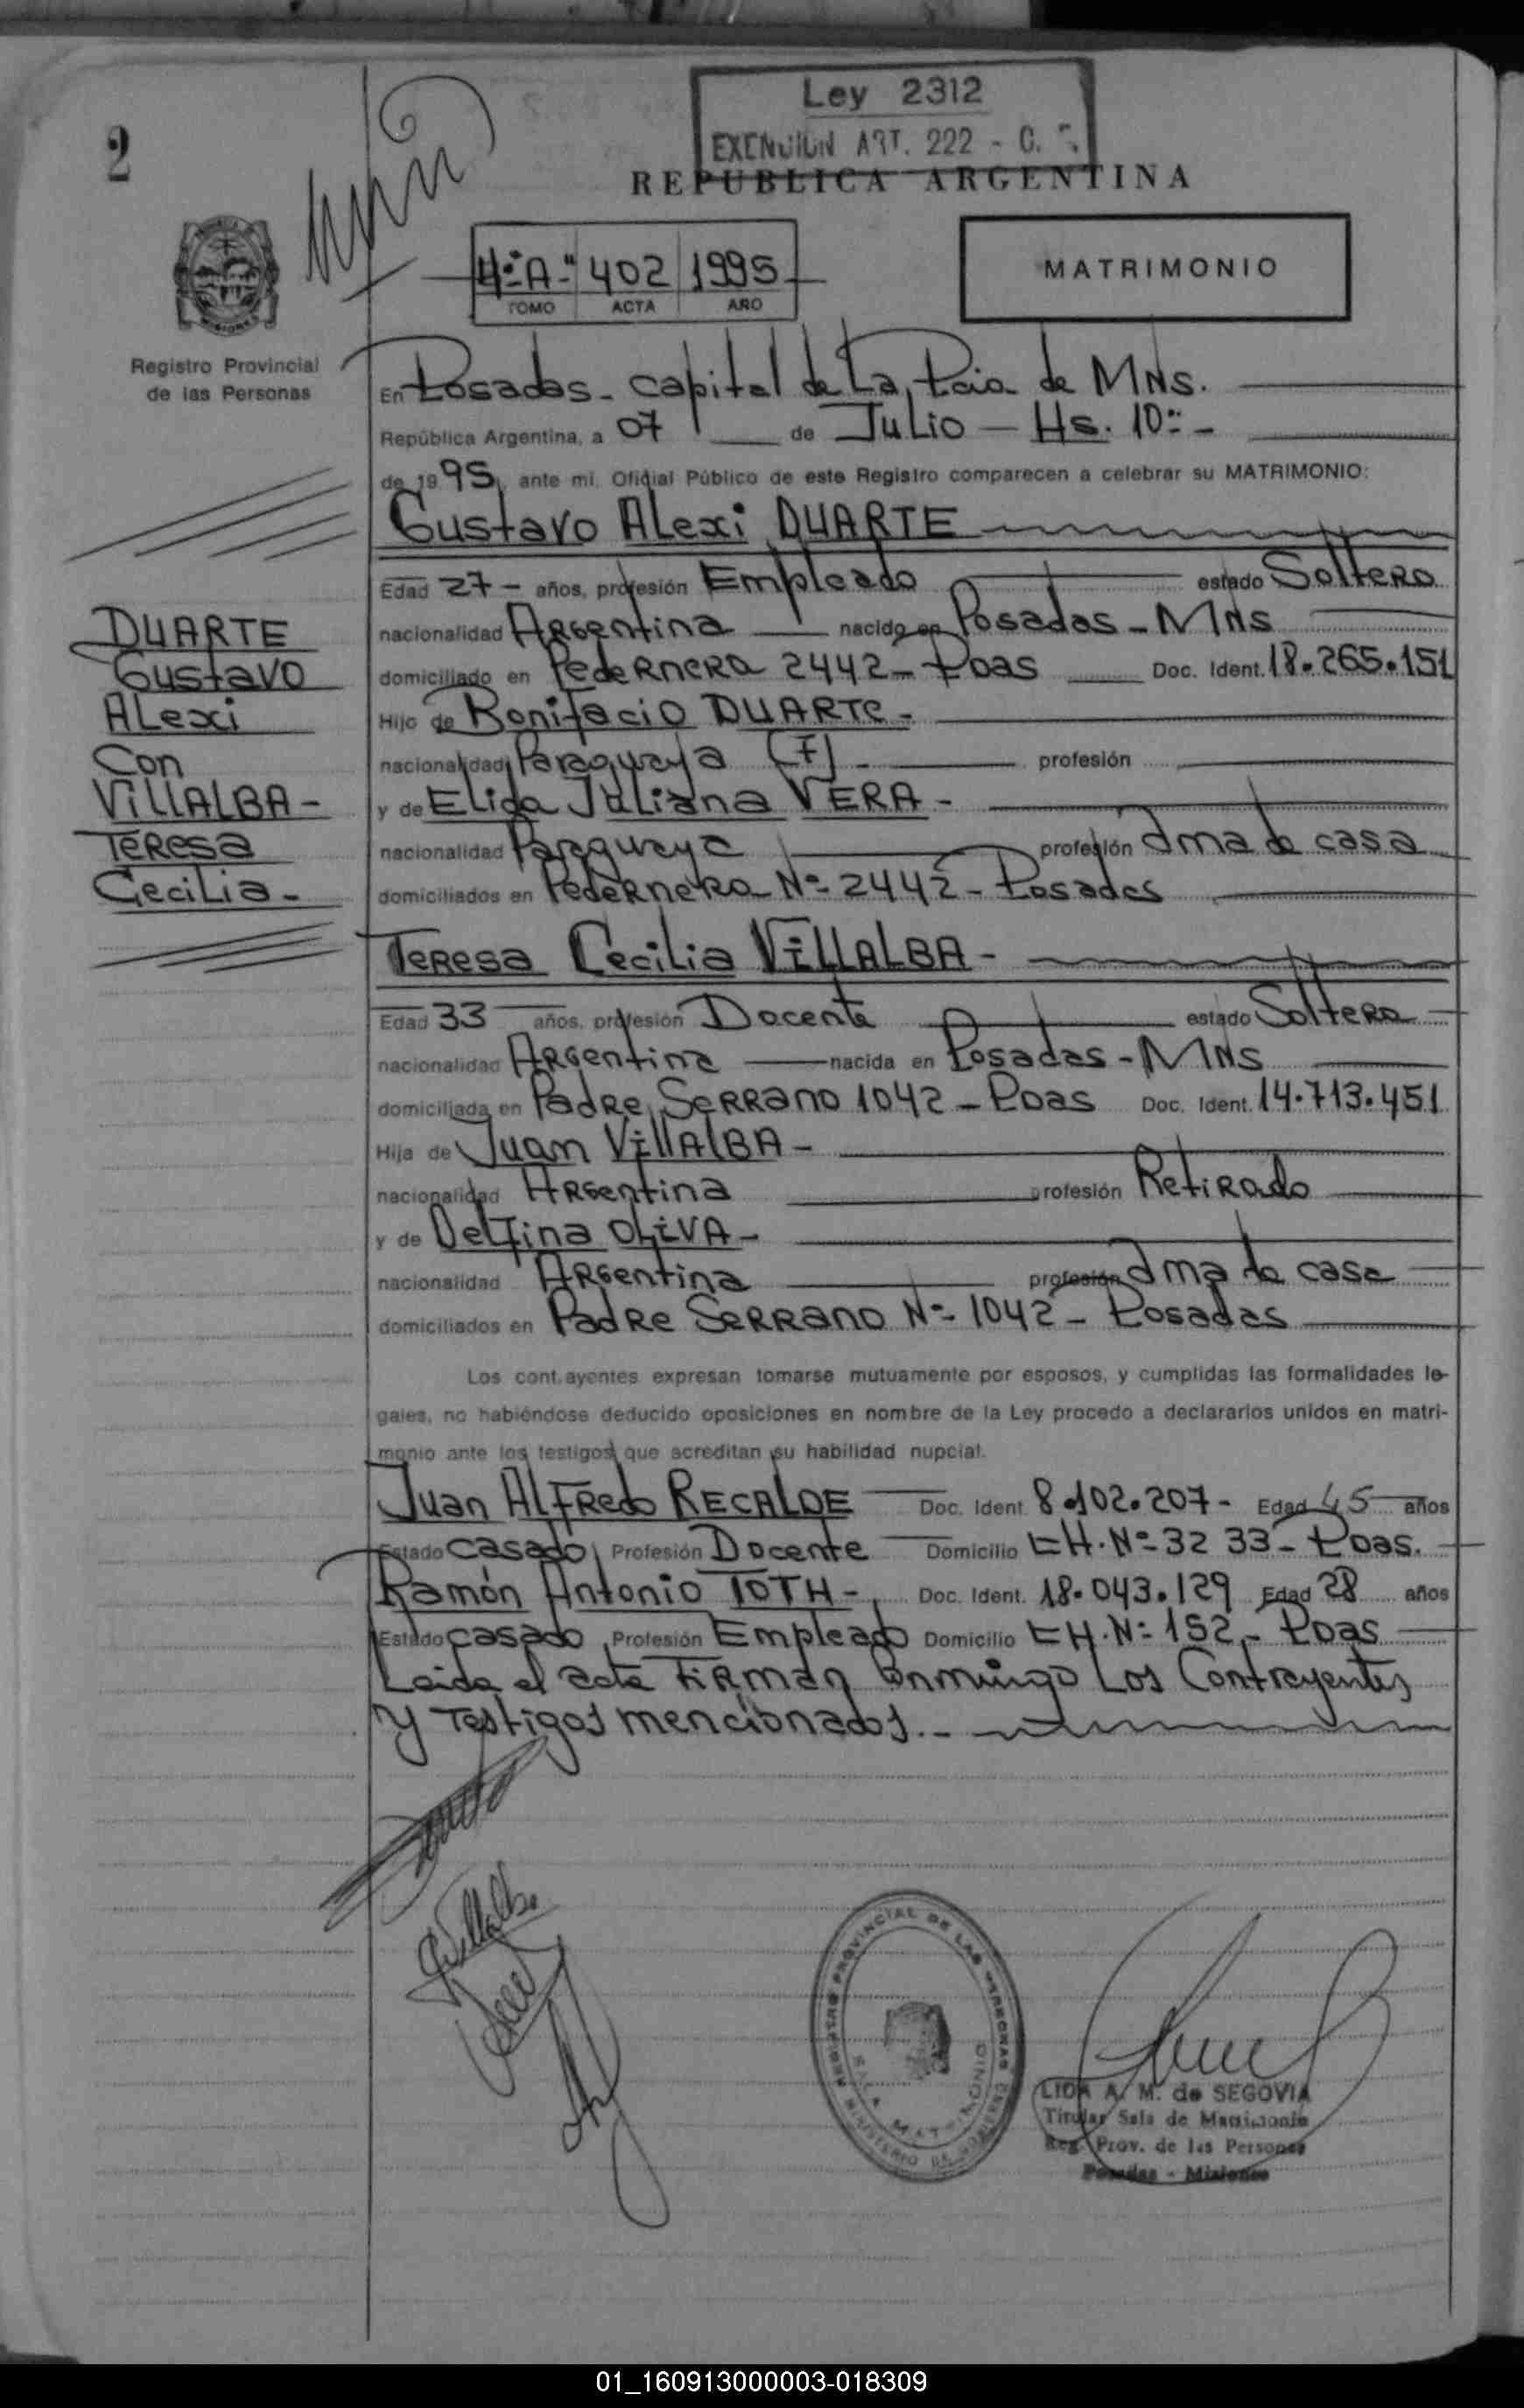 Ley 2312
EXENCION ART. 222 - C.
REPUBLICA ARGENTINA
2
4º "A" 402 1995
TOMO ACTA AÑO
MATRIMONIO
MISIONES
Registro Provincial
de las Personas
En Posadas - capital de La Pcia de MNS.
República Argentina, a 07 de Julio - Hs. 10:-
de 1995, ante mi, Oficial Público de este Registro comparecen a celebrar su MATRIMONIO:
Gustavo Alexi DUARTE
Edad 27 - años, profesión Empleado estado Soltero
nacionalidad Argentina nacido en Posadas - MNS
domiciliado en Pedernera 2442 - Pdas Doc. Ident. 18.265.151
Hijo de Bonifacio DUARTE -
nacionalidad Paraguaya (f) - profesión
y de Elida Juliana VERA -
nacionalidad Paraguaya profesión Ama de casa
domiciliados en Pedernera Nº 2442 - Posadas
DUARTE
Gustavo
Alexi
Con
VILLALBA -
Teresa
Cecilia -
Teresa Cecilia VILLALBA -
Edad 33 años, profesión Docente estado Soltera
nacionalidad Argentina nacida en Posadas - MNS
domiciliada en Padre Serrano 1042 - Pdas Doc. Ident. 14.713.451
Hija de Juan VILLALBA -
nacionalidad Argentina profesión Retirado
y de Delfina OLIVA -
nacionalidad Argentina profesión Ama de casa
domiciliados en Padre Serrano Nº 1042 - Posadas
Los contrayentes expresan tomarse mutuamente por esposos, y cumplidas las formalidades le-
gales, no habiéndose deducido oposiciones en nombre de la Ley procedo a declararlos unidos en matri-
monio ante los testigos que acreditan su habilidad nupcial.
Juan Alfredo RECALDE Doc. Ident. 8.102.207 - Edad 45 años
Estado casado Profesión Docente Domicilio CH. Nº 32 33 - Pdas.
Ramón Antonio TOTH - Doc. Ident. 18.043.129 Edad 28 años
Estado casado Profesión Empleado Domicilio CH. Nº 152 - Pdas
Leida el acta firman conmigo Los Contrayentes
y Testigos mencionados.-
REGISTRO PROVINCIAL DE LAS PERSONAS
SALA MATRIMONIO
MINISTERIO DE
LIDA A. M. de SEGOVIA
Titular Sala de Matrimonio
Reg. Prov. de las Personas
Posadas - Misiones
01_160913000003-018309